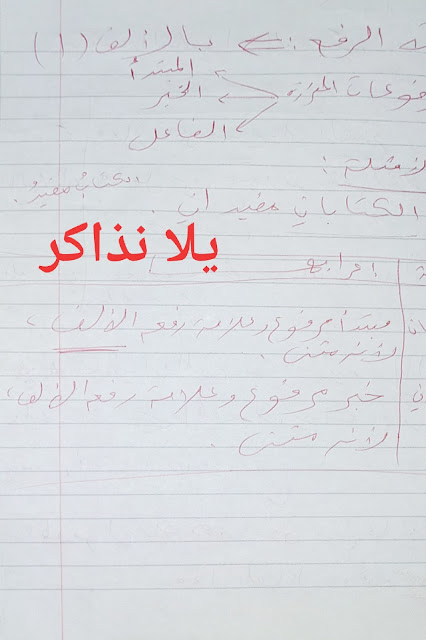 ـة الرفع : ⇐ بالألف (ا)
المبتدأ
ـفوعات المقررة الخبر
الفاعل
الأمثلة :
الكتابُ مفيدٌ.
الكتابان مفيدان .
يلا نذاكر
إعرابها
ـان مبتدأ مرفوع وعلامة رفعه الألف ،
لأنه مثنى .
ـان خبر مرفوع وعلامة رفعه الألف ،
لأنه مثنى .